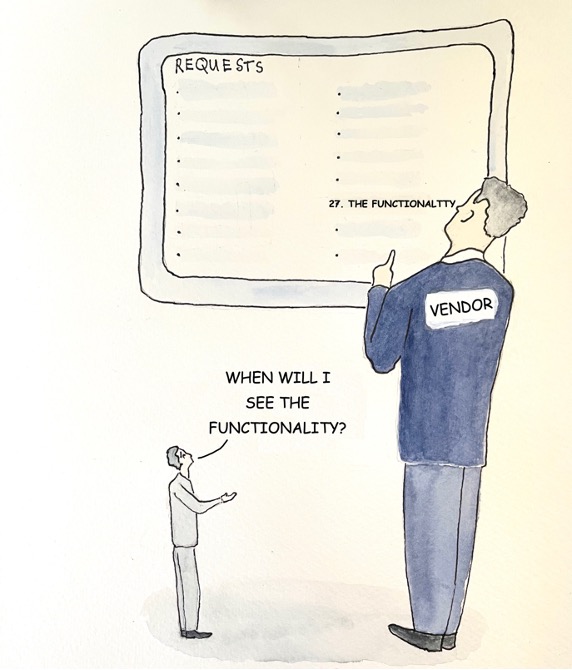 REQUESTS
27. THE FUNCTIONALTTY
VENDOR
WHEN WILL I
SEE THE
FUNCTIONALITY?